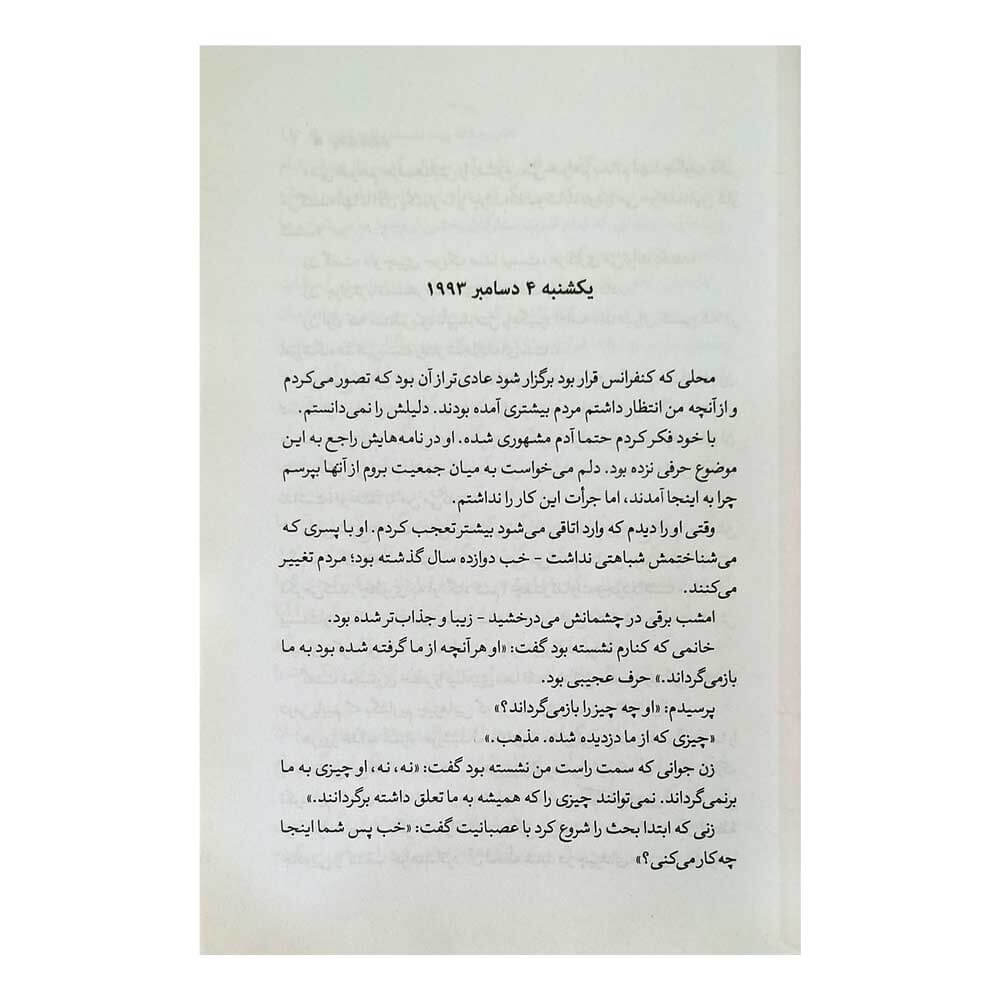 یکشنبه ۴ دسامبر ۱۹۹۳
محلی که کنفرانس قرار بود برگزار شود عادی‌تر از آن بود که تصور می‌کردم
و از آنچه من انتظار داشتم مردم بیشتری آمده بودند. دلیلش را نمی‌دانستم.
با خود فکر کردم حتما آدم مشهوری شده. او در نامه‌هایش راجع به این
موضوع حرفی نزده بود. دلم می‌خواست به میان جمعیت بروم از آنها بپرسم
چرا به اینجا آمدند، اما جرأت این کار را نداشتم.
وقتی او را دیدم که وارد اتاقی می‌شود بیشتر تعجب کردم. او با پسری که
می‌شناختمش شباهتی نداشت - خب دوازده سال گذشته بود؛ مردم تغییر
می‌کنند.
امشب برقی در چشمانش می‌درخشید - زیبا و جذاب‌تر شده بود.
خانمی که کنارم نشسته بود گفت: «او هر آنچه از ما گرفته شده بود به ما
بازمی‌گرداند.» حرف عجیبی بود.
پرسیدم: «او چه چیز را بازمی‌گرداند؟»
«چیزی که از ما دزدیده شده. مذهب.»
زن جوانی که سمت راست من نشسته بود گفت: «نه، نه، او چیزی به ما
برنمی‌گرداند. نمی‌توانند چیزی را که همیشه به ما تعلق داشته برگردانند.»
زنی که ابتدا بحث را شروع کرد با عصبانیت گفت: «خب پس شما اینجا
چه کار می‌کنی؟»